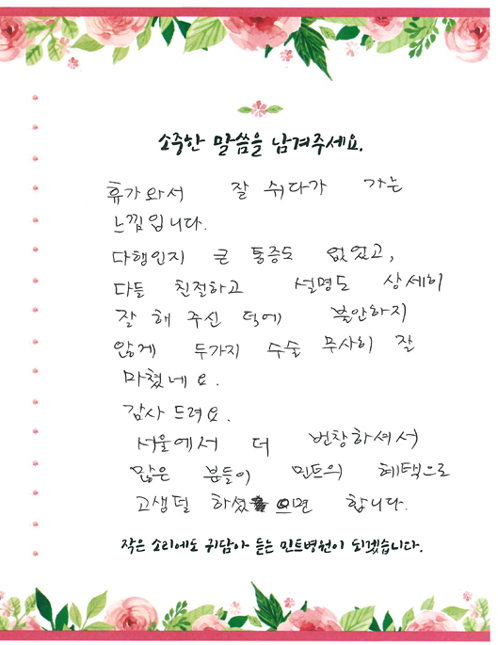 소중한 말씀을 남겨주세요.
휴가와서 잘 쉬다가 가는
느낌입니다.
다행인지 큰 통증도 없었고,
다들 친절하고 설명도 상세히
잘 해 주신 덕에 불안하지
않게 두가지 수술 무사히 잘
마쳤네요.
감사드려요.
서울에서 더 번창하셔서
많은 분들이 민트의 혜택으로
고생덜 하셨으면 합니다.
작은 소리에도 귀담아 듣는 민트병원이 되겠습니다.